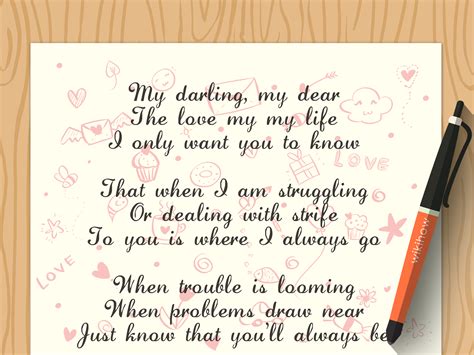 My darling, my dear
The love my my life
I only want you to know
LOVE
That when I am struggling
Or dealing with strife
To you is where I always go
LOVE
When trouble is looming
When problems draw near
Just know that you'll always be
wikiHow